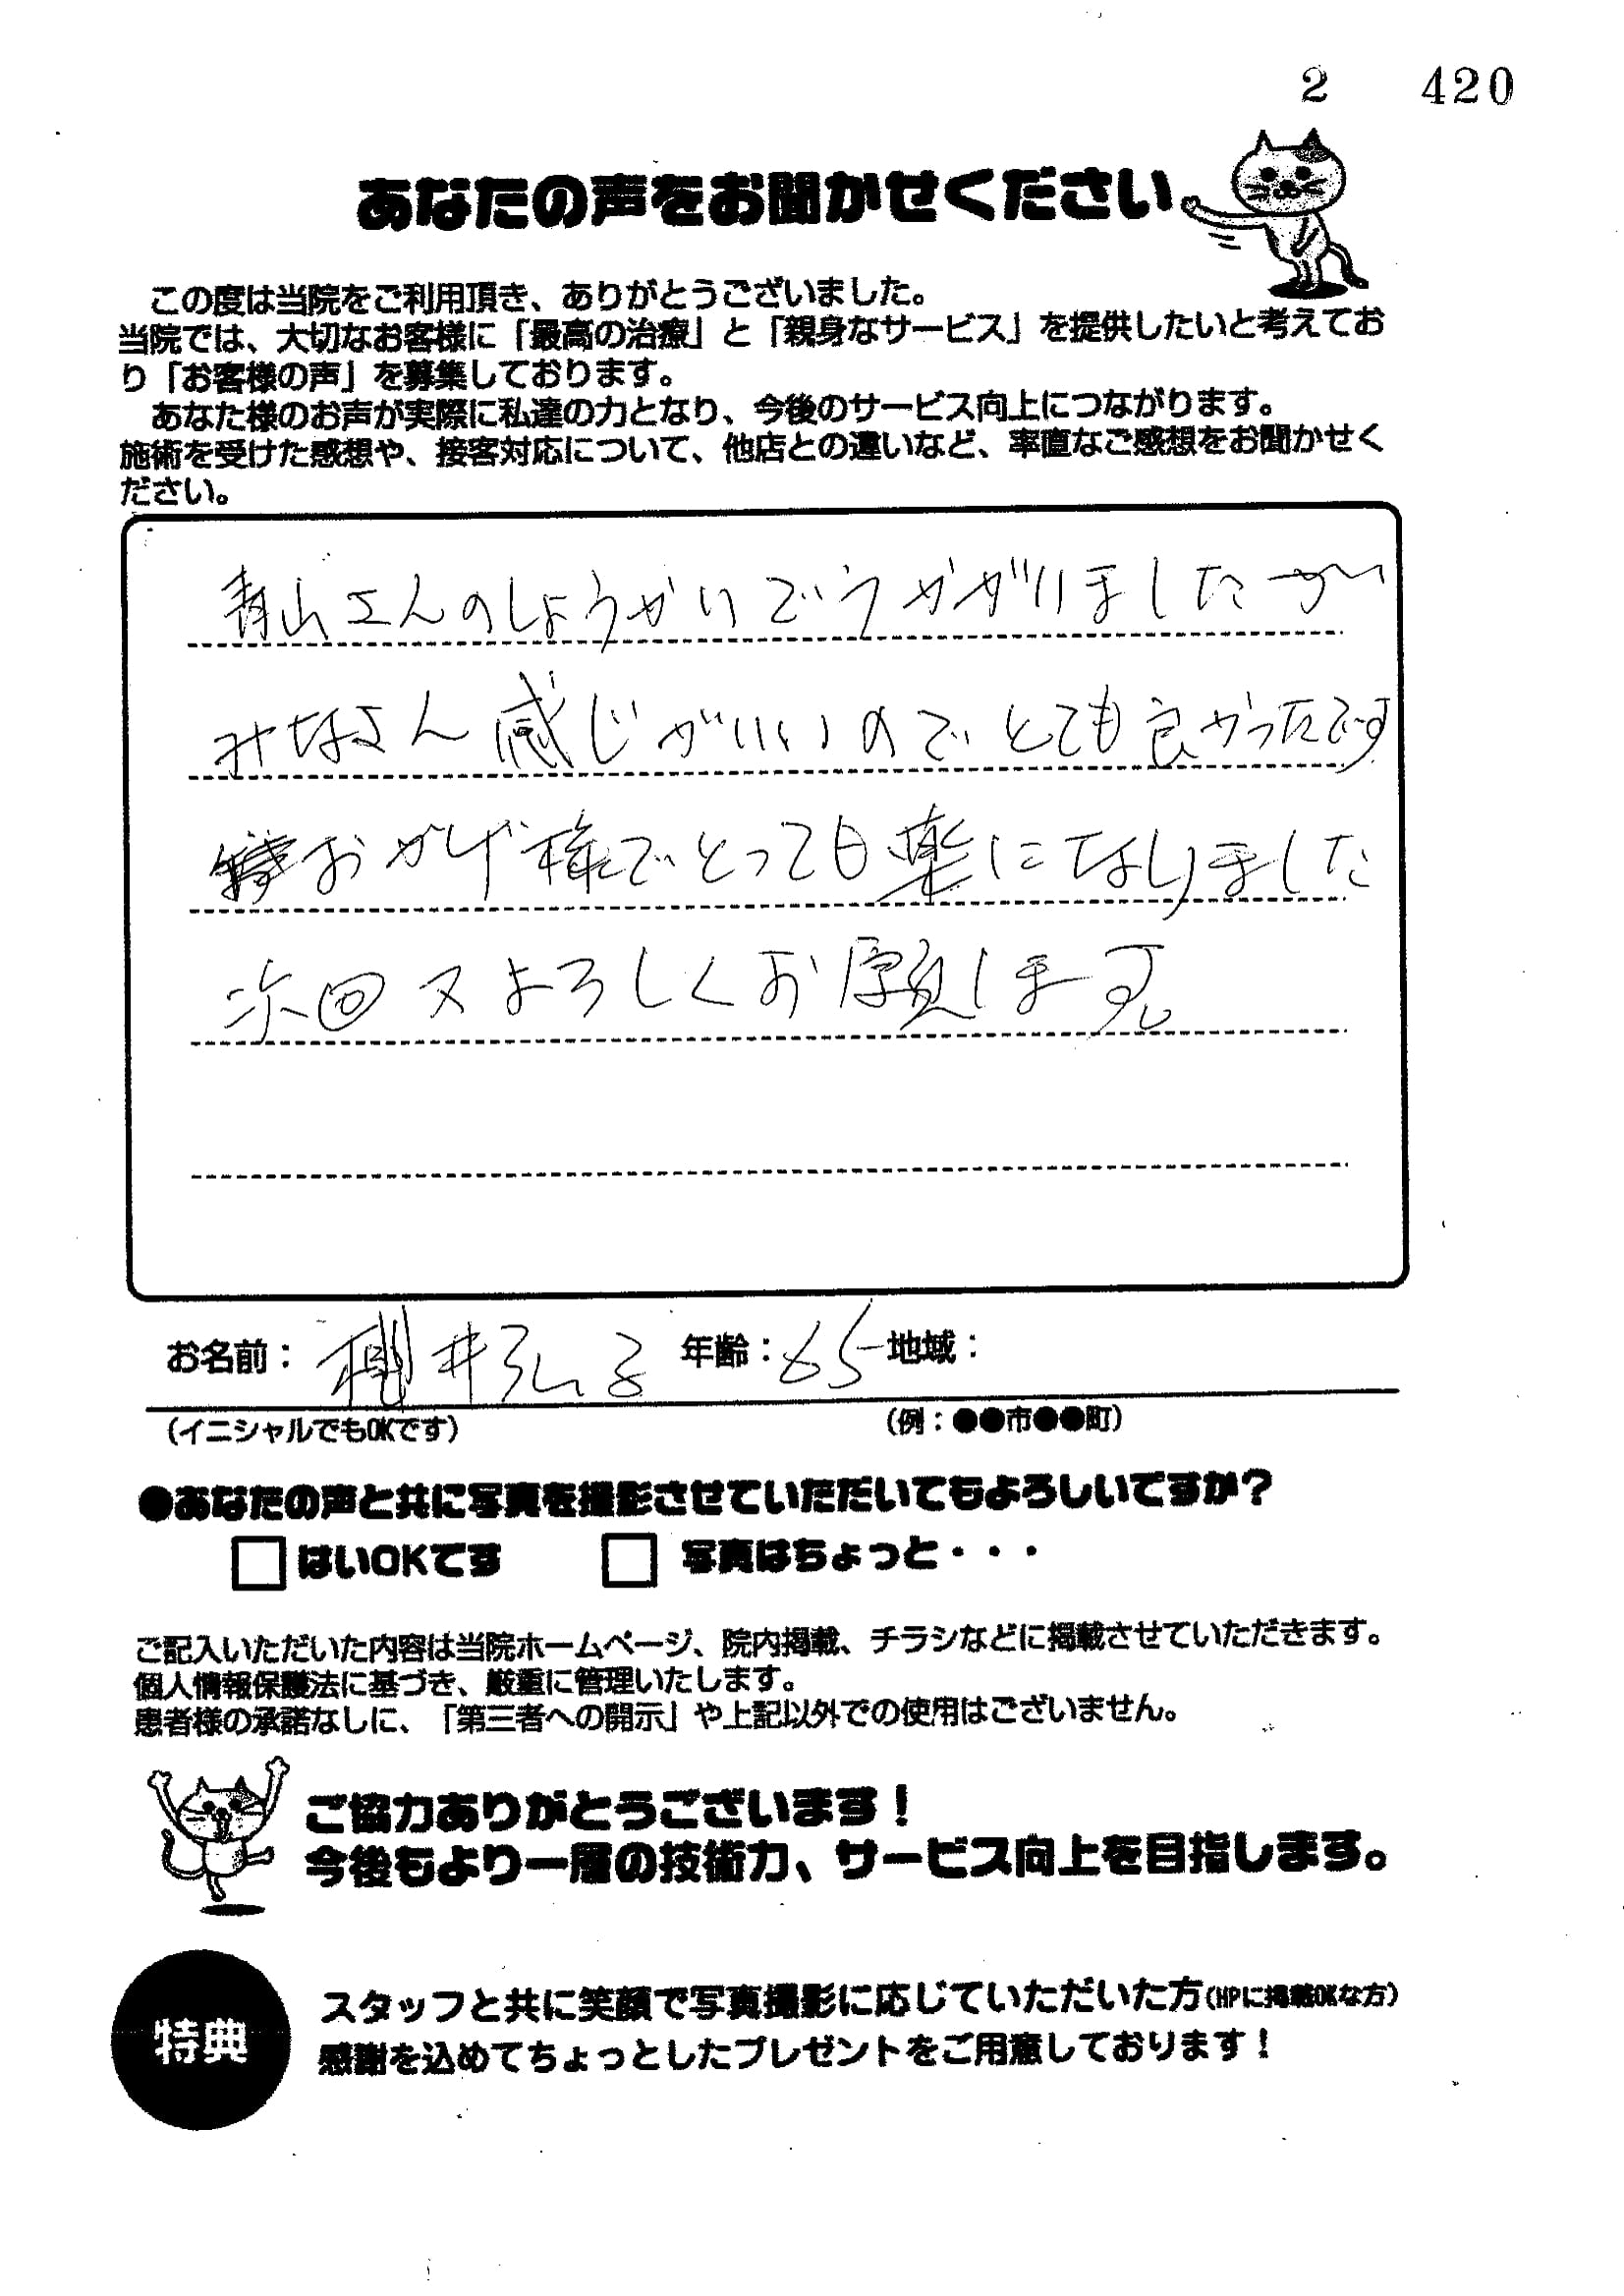 2 420
あなたの声をお聞かせください
この度は当院をご利用頂き、ありがとうございました。
当院では、大切なお客様に「最高の治療」と「親身なサービス」を提供したいと考えてお
り「お客様の声」を募集しております。
あなた様のお声が実際に私達の力となり、今後のサービス向上につながります。
施術を受けた感想や、接客対応について、他店との違いなど、率直なご感想をお聞かせく
ださい。
青山さんのしょうかいでうかがいましたが
みなさん感じがいいのでとても良かったです
おかげ様でとっても楽になりました
次回又よろしくお願します
お名前： 井弘子 年齢：65 地域：
(イニシャルでもOKです) (例：●●市●●町)
●あなたの声と共に写真を撮影させていただいてもよろしいですか？
□はいOKです □写真はちょっと・・・
ご記入いただいた内容は当院ホームページ、院内掲載、チラシなどに掲載させていただきます。
個人情報保護法に基づき、厳重に管理いたします。
患者様の承諾なしに、「第三者への開示」や上記以外での使用はございません。
ご協力ありがとうございます！
今後もより一層の技術力、サービス向上を目指します。
特典
スタッフと共に笑顔で写真撮影に応じていただいた方(HPに掲載OKな方)
感謝を込めてちょっとしたプレゼントをご用意しております！